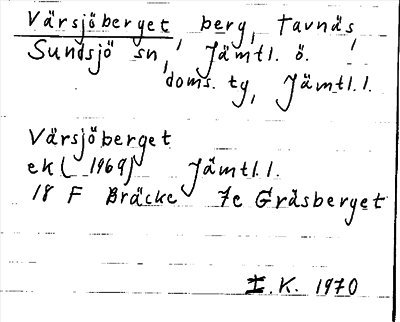 Värsjöberget, berg, Tavnäs,
Sundsjö sn, Jämtl. ö.
doms. ty, Jämtl. l.
Värsjöberget
ek ( 1969) Jämtl. l.
18 F Bräcke 7e Gräsberget
I.K. 1970